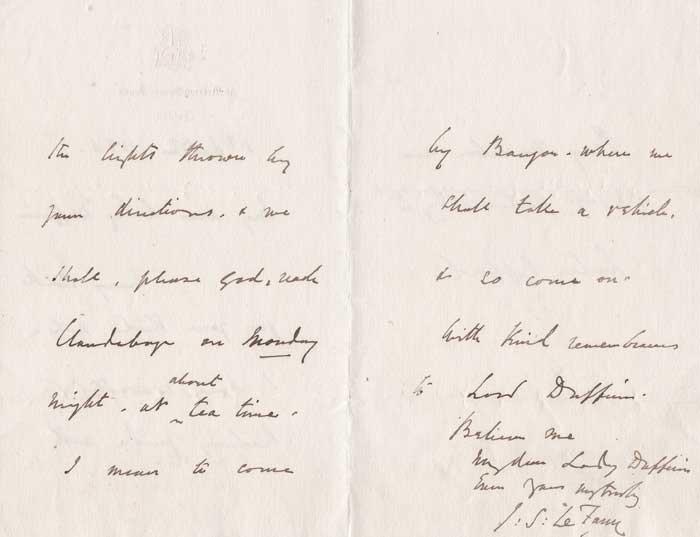 the lights thrown by
your directions. & we
shall, please God, reach
Clandeboye on Monday
night. at about tea time.
I mean to come
by Bangor. where we
shall take a vehicle.
& so come on.
With kind remembrances
to Lord Dufferin.
Believe me
my dear Lady Dufferin
Ever yours very truly
J: S: Le Fanu